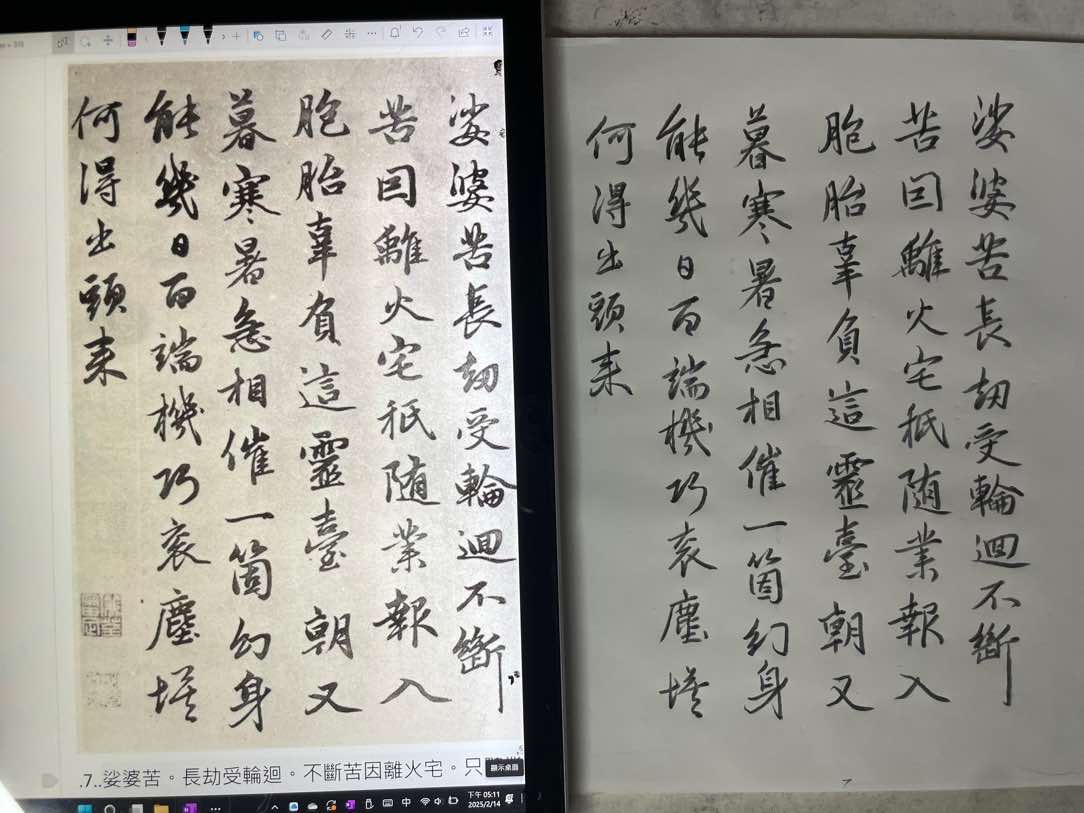 娑婆苦長劫受輪迴不斷
苦因離火宅秖随業報入
胞胎辜負這靈臺朝又
暮寒暑急相催一箇幻身
能幾日百端機巧衮塵埃
何得出頭来
.7..娑婆苦。長劫受輪迴。不斷苦因離火宅。只
顯示桌面
中
下午 05:11
2025/2/14
娑婆苦長劫受輪迴不斷
苦因離火宅秖随業報入
胞胎辜負這靈臺朝又
暮寒暑急相催一箇幻身
能幾日百端機巧衮塵埃
何得出頭来
7